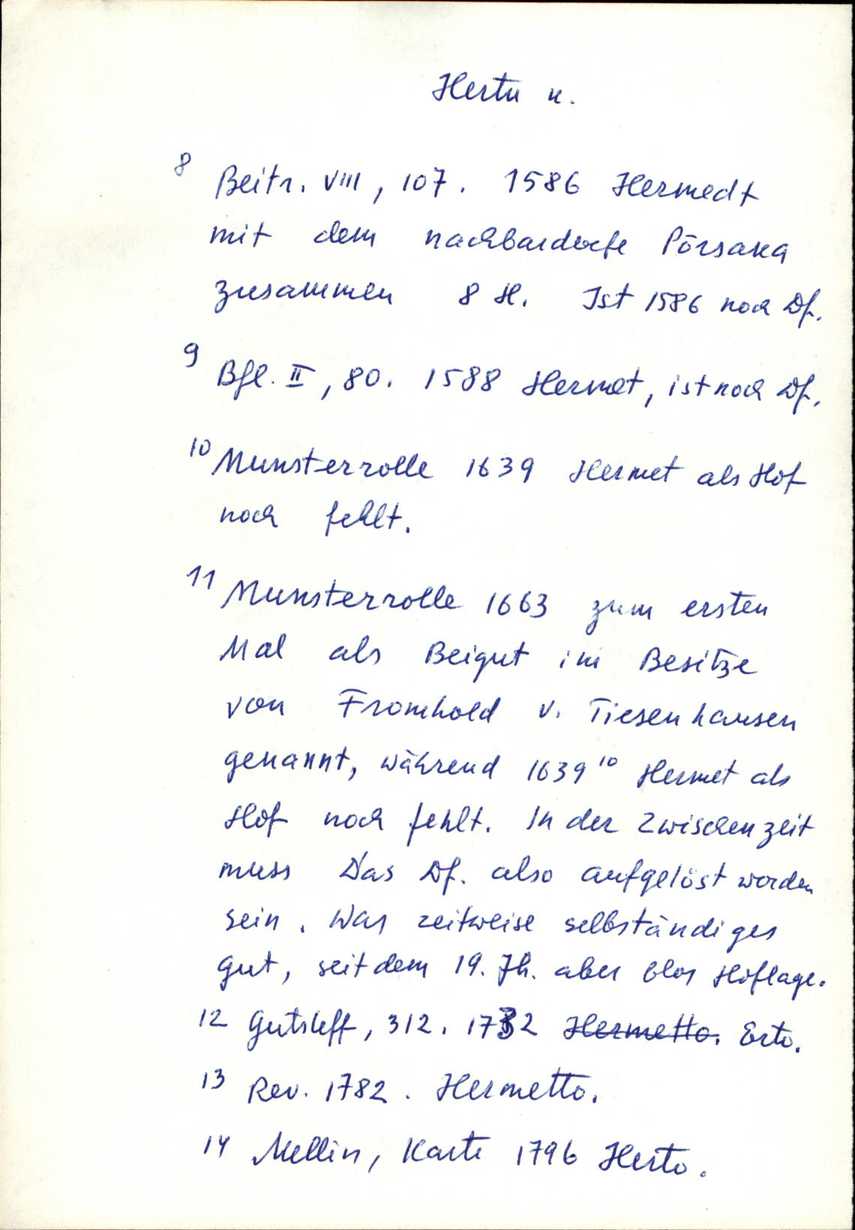 Hertu k.
8 Beitr. VIII, 107. 1586 Hermedt
mit dem nachbardorfe Põrsaka
zusammen 8 H. Ist 1586 noch Df.
9 Bfl. II, 80. 1588 Hermet, ist noch Df.
10 Munsterrolle 1639 Hermet als Hof
noch fehlt.
11 Munsterrolle 1663 zum ersten
Mal als Beigut im Besitze
von Fromhold v. Tiesenhausen
genannt, während 1639 10 Hermet als
Hof noch fehlt. In der Zwischenzeit
muss Das Df. also aufgelöst worden
sein. War zeitweise selbständiges
gut, seit dem 19. Jh. aber blos Hoflage.
12 Gutsleff, 312. 1732 Hermetto. Erto.
13 Rev. 1782. Hermetto.
14 Mellin, Karte 1796 Herto.